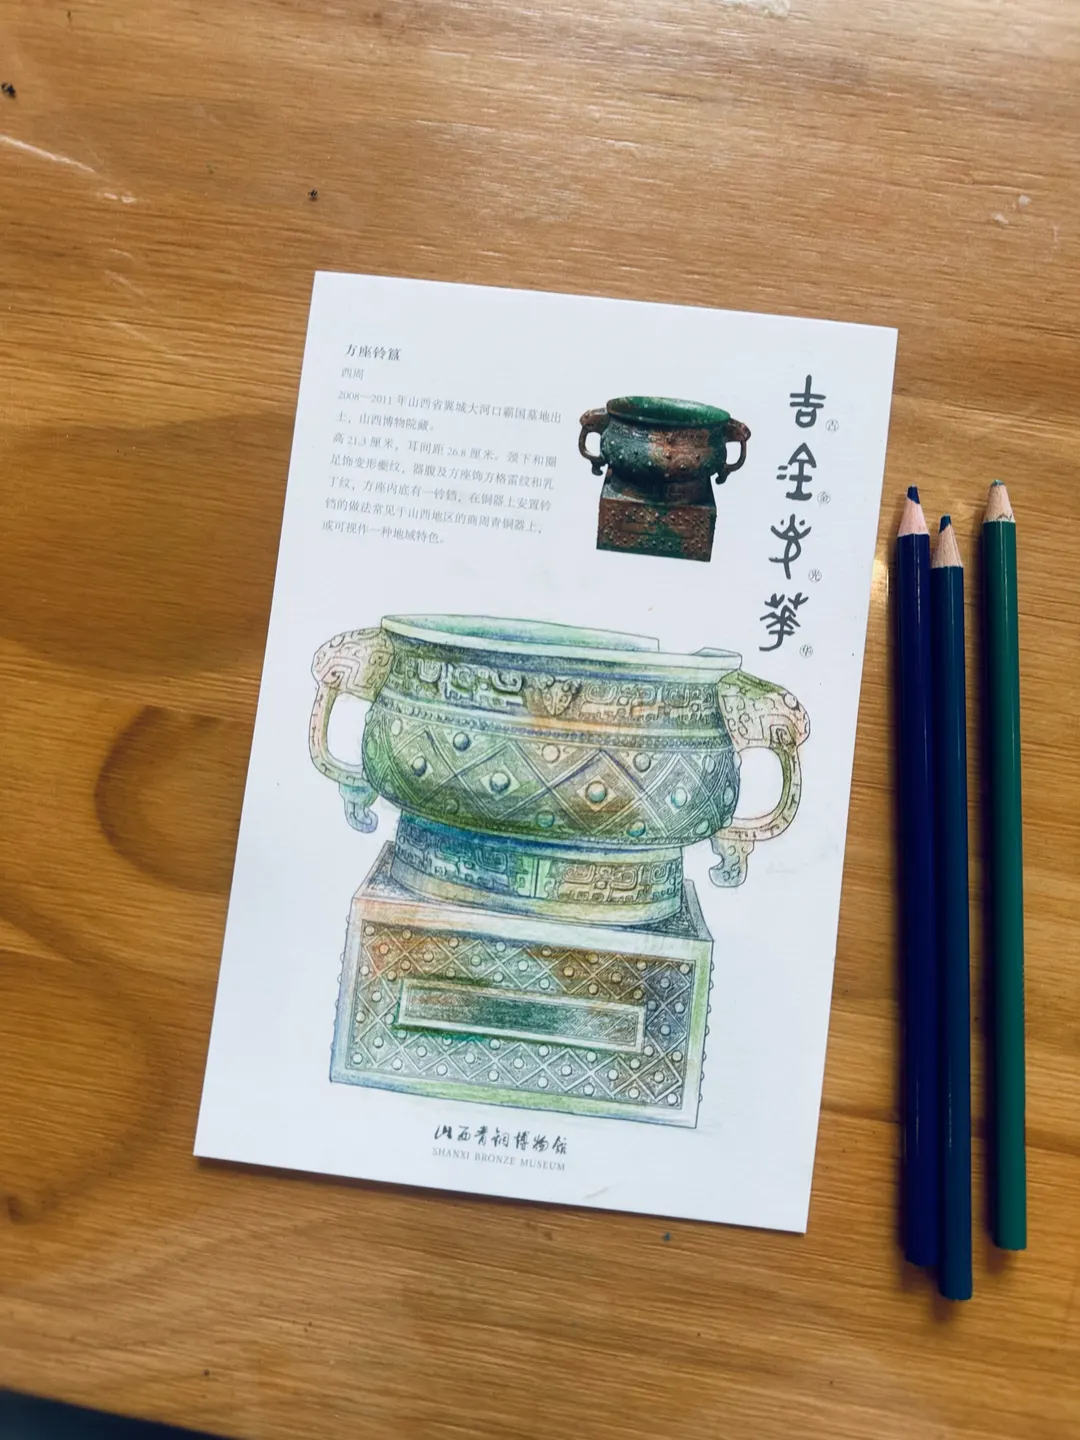 方座铃簋
西周
2008—2011 年山西省翼城大河口霸国墓地出
土，山西博物院藏。
高 21.3 厘米，耳间距 26.8 厘米。颈下和圈
足饰变形夔纹，器腹及方座饰方格雷纹和乳
丁纹，方座内底有一铃铛，在铜器上安置铃
铛的做法常见于山西地区的商周青铜器上，
或可视作一种地域特色。
吉金光华
吉
金
光
华
山西青铜博物馆
SHANXI BRONZE MUSEUM